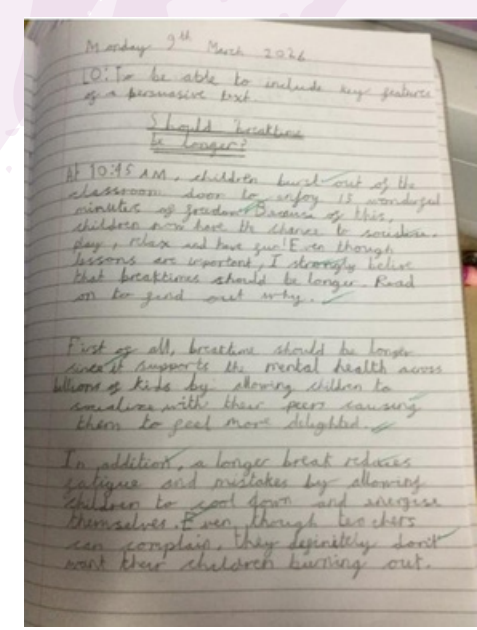 Monday 9th March 2026
LO: To be able to include key features
of a persuasive text.
Should breaktime
be longer?
At 10:45 AM, children burst out of the
classroom door to enjoy 15 wonderful
minutes of freedom. Because of this,
children now have the chance to socialise,
play, relax and have fun! Even though
lessons are important, I strongly belive
that breaktimes should be longer. Read
on to find out why.
First of all, breaktime should be longer
since it supports the mental health across
billions of kids by allowing children to
socialize with their peers causing
them to feel more delighted.
In addition, a longer break reduces
fatigue and mistakes by allowing
children to cool down and energise
themselves. Even though teachers
can complain, they definitely don't
want their children burning out.